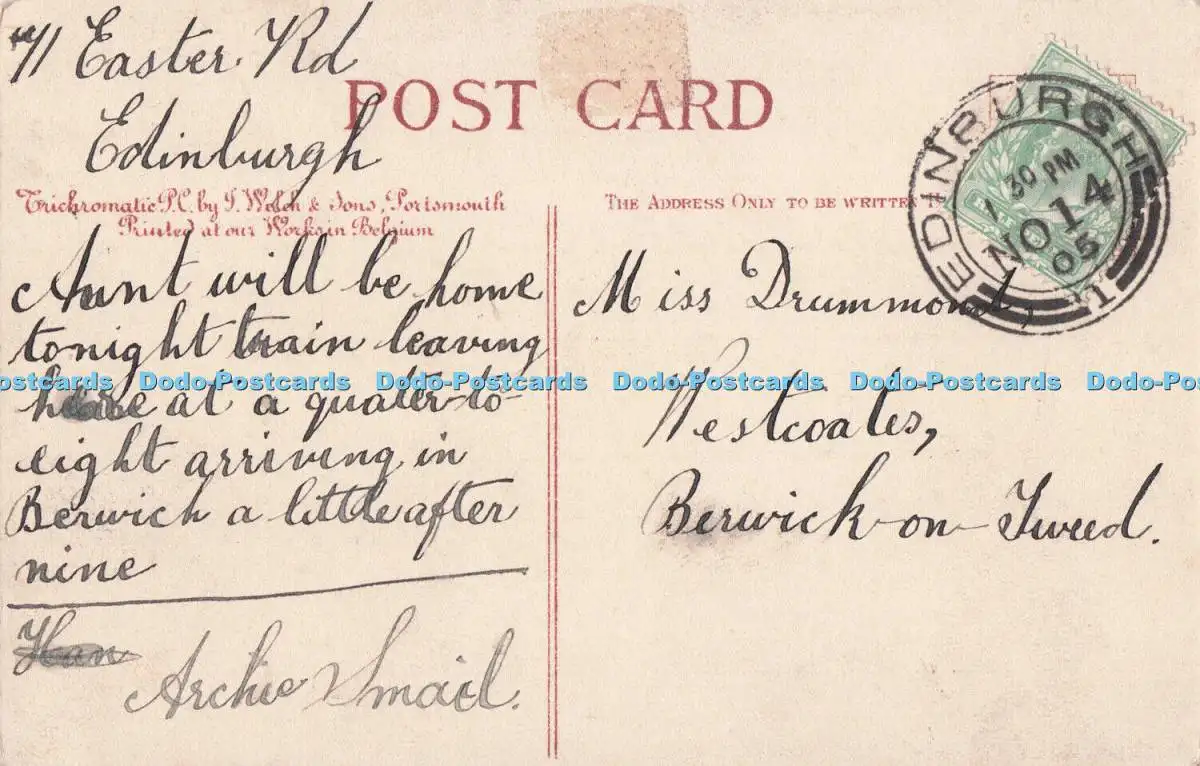 71 Easter Rd
Edinburgh
POST CARD
Trichromatic P.C. by J. Welch & Sons, Portsmouth
Printed at our Works in Belgium
THE ADDRESS ONLY TO BE WRITTEN
EDINBURGH
1 30 PM
NO 14
05
1
Aunt will be home
tonight train leaving
here at a quater-to-
eight arriving in
Berwich a little after
nine
Archie Smail.
Miss Drummond,
Westcoates,
Berwick-on-Tweed.
Dodo-Postcards Dodo-Postcards Dodo-Postcards Dodo-Postcards Dodo-Postcards Dodo-Postcards